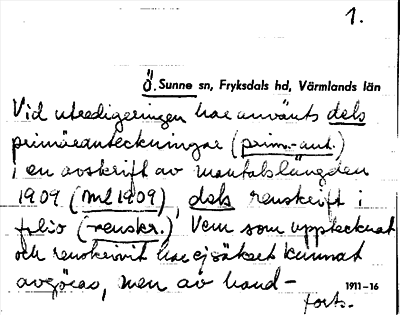 1.
Ö. Sunne sn, Fryksdals hd, Värmlands län
Vid utredigeringen har använts dels
primäranteckningar (prim.-ant.)
i en avskrift av mantalslängden
1909 (ml 1909), dels renskrift i
folio (renskr.). Vem som upptecknat
och renskrivit har ej säkert kunnat
avgöras, men av hand-
1911-16
forts.